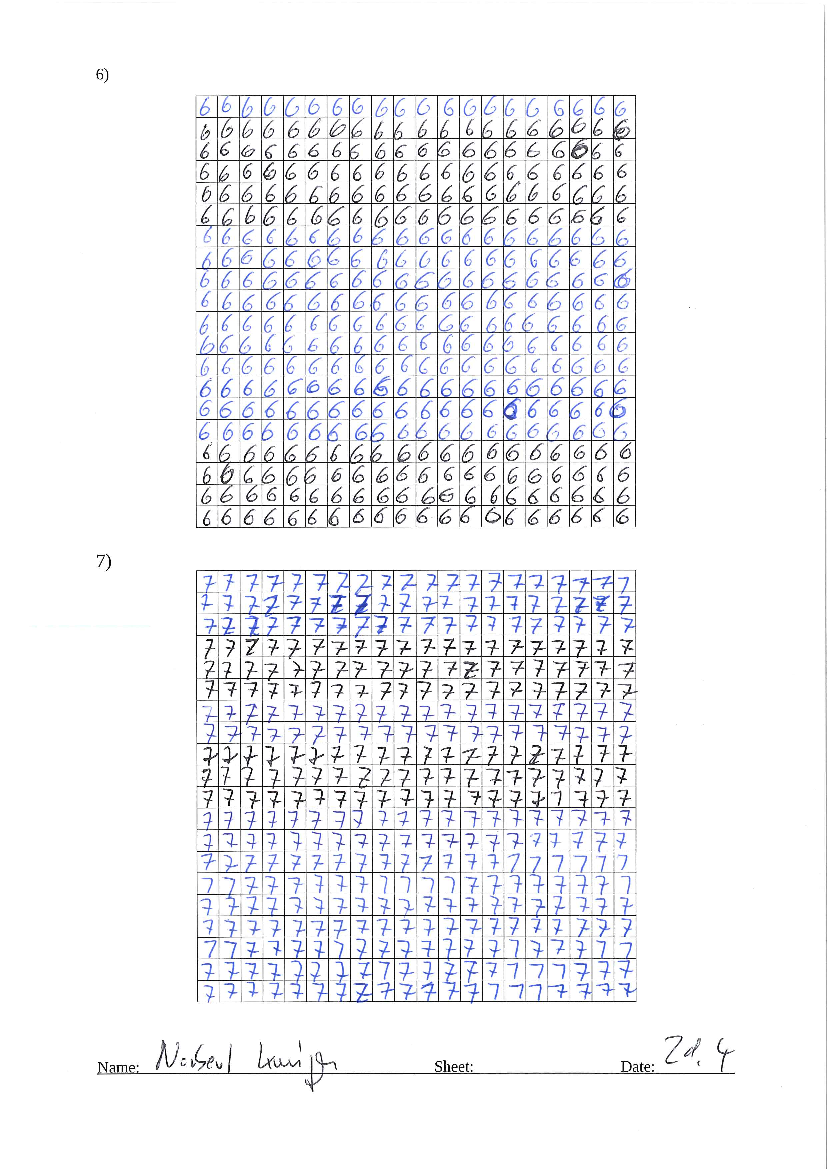 6)
6 6 6 6 6 6 6 6 6 6 6 6 6 6 6 6 6 6 6 6
6 6 6 6 6 6 6 6 6 6 6 6 6 6 6 6 6 6 6 6
6 6 6 6 6 6 6 6 6 6 6 6 6 6 6 6 6 6 6 6
6 6 6 6 6 6 6 6 6 6 6 6 6 6 6 6 6 6 6 6
6 6 6 6 6 6 6 6 6 6 6 6 6 6 6 6 6 6 6 6
6 6 6 6 6 6 6 6 6 6 6 6 6 6 6 6 6 6 6 6
6 6 6 6 6 6 6 6 6 6 6 6 6 6 6 6 6 6 6 6
6 6 6 6 6 6 6 6 6 6 6 6 6 6 6 6 6 6 6 6
6 6 6 6 6 6 6 6 6 6 6 6 6 6 6 6 6 6 6 6
6 6 6 6 6 6 6 6 6 6 6 6 6 6 6 6 6 6 6 6
6 6 6 6 6 6 6 6 6 6 6 6 6 6 6 6 6 6 6 6
6 6 6 6 6 6 6 6 6 6 6 6 6 6 6 6 6 6 6 6
6 6 6 6 6 6 6 6 6 6 6 6 6 6 6 6 6 6 6 6
6 6 6 6 6 6 6 6 6 6 6 6 6 6 6 6 6 6 6 6
6 6 6 6 6 6 6 6 6 6 6 6 6 6 6 6 6 6 6 6
6 6 6 6 6 6 6 6 6 6 6 6 6 6 6 6 6 6 6 6
6 6 6 6 6 6 6 6 6 6 6 6 6 6 6 6 6 6 6 6
6 6 6 6 6 6 6 6 6 6 6 6 6 6 6 6 6 6 6 6
6 6 6 6 6 6 6 6 6 6 6 6 6 6 6 6 6 6 6 6
6 6 6 6 6 6 6 6 6 6 6 6 6 6 6 6 6 6 6 6
7)
7 7 7 7 7 7 7 7 7 7 7 7 7 7 7 7 7 7 7 7
7 7 7 7 7 7 7 7 7 7 7 7 7 7 7 7 7 7 7 7
7 7 7 7 7 7 7 7 7 7 7 7 7 7 7 7 7 7 7 7
7 7 7 7 7 7 7 7 7 7 7 7 7 7 7 7 7 7 7 7
7 7 7 7 7 7 7 7 7 7 7 7 7 7 7 7 7 7 7 7
7 7 7 7 7 7 7 7 7 7 7 7 7 7 7 7 7 7 7 7
7 7 7 7 7 7 7 7 7 7 7 7 7 7 7 7 7 7 7 7
7 7 7 7 7 7 7 7 7 7 7 7 7 7 7 7 7 7 7 7
7 7 7 7 7 7 7 7 7 7 7 7 7 7 7 7 7 7 7 7
7 7 7 7 7 7 7 7 7 7 7 7 7 7 7 7 7 7 7 7
7 7 7 7 7 7 7 7 7 7 7 7 7 7 7 7 7 7 7 7
7 7 7 7 7 7 7 7 7 7 7 7 7 7 7 7 7 7 7 7
7 7 7 7 7 7 7 7 7 7 7 7 7 7 7 7 7 7 7 7
7 7 7 7 7 7 7 7 7 7 7 7 7 7 7 7 7 7 7 7
7 7 7 7 7 7 7 7 7 7 7 7 7 7 7 7 7 7 7 7
7 7 7 7 7 7 7 7 7 7 7 7 7 7 7 7 7 7 7 7
7 7 7 7 7 7 7 7 7 7 7 7 7 7 7 7 7 7 7 7
7 7 7 7 7 7 7 7 7 7 7 7 7 7 7 7 7 7 7 7
7 7 7 7 7 7 7 7 7 7 7 7 7 7 7 7 7 7 7 7
7 7 7 7 7 7 7 7 7 7 7 7 7 7 7 7 7 7 7 7
Name: Sheet: Date: